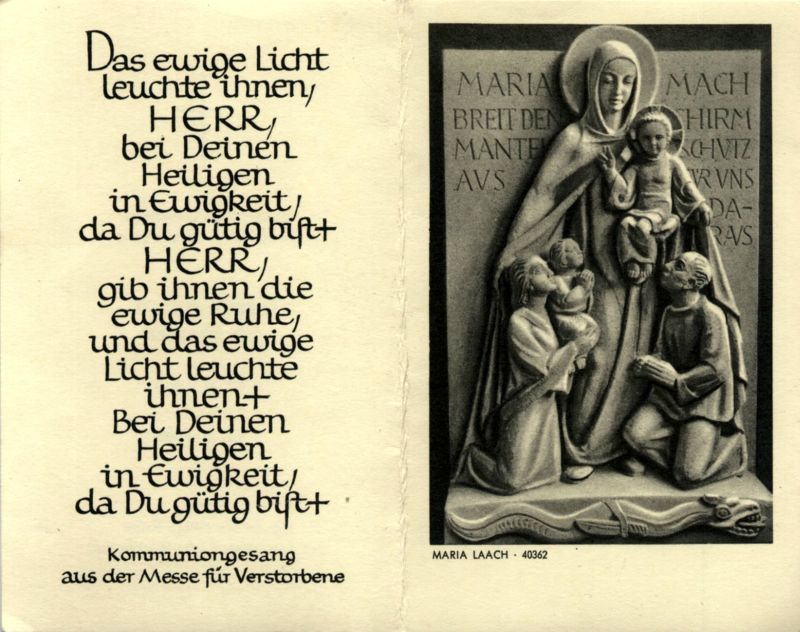 Das ewige Licht
leuchte ihnen,
HERR,
bei Deinen
Heiligen
in Ewigkeit,
da Du gütig biſt+
HERR,
gib ihnen die
ewige Ruhe,
und das ewige
Licht leuchte
ihnen+
Bei Deinen
Heiligen
in Ewigkeit,
da Du gütig biſt+
Kommuniongesang
aus der Messe für Verstorbene
MARIA
BREIT DEN
MANTEL
AVS
MACH
HIRM
SCHVTZ
VR VNS
DA-
RAVS
MARIA LAACH · 40362